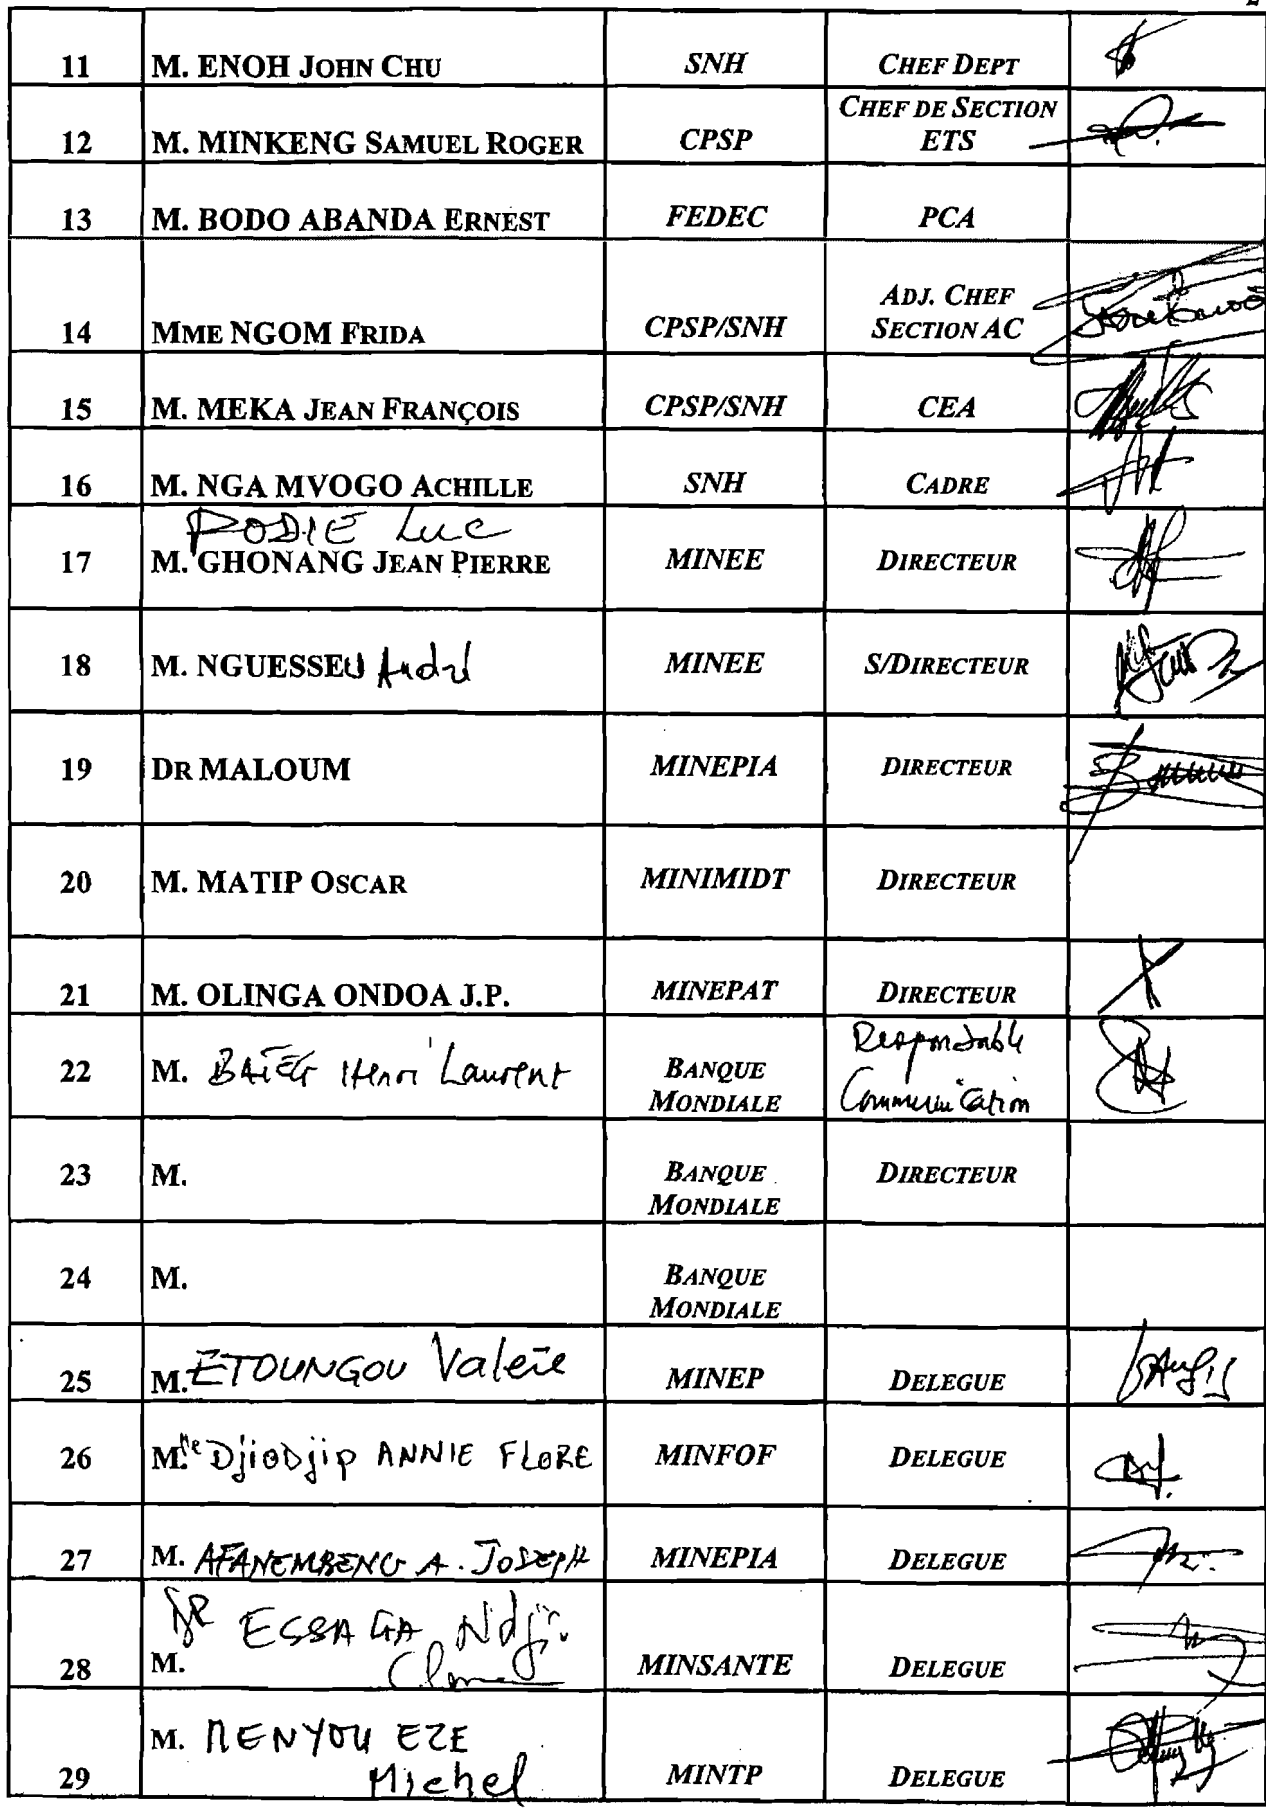 2
11 M. ENOH JOHN CHU SNH CHEF DEPT
12 M. MINKENG SAMUEL ROGER CPSP CHEF DE SECTION ETS
13 M. BODO ABANDA ERNEST FEDEC PCA
14 MME NGOM FRIDA CPSP/SNH ADJ. CHEF SECTION AC
15 M. MEKA JEAN FRANÇOIS CPSP/SNH CEA
16 M. NGA MVOGO ACHILLE SNH CADRE
PODIE Luc
17 M. GHONANG JEAN PIERRE MINEE DIRECTEUR
18 M. NGUESSEU André MINEE S/DIRECTEUR
19 DR MALOUM MINEPIA DIRECTEUR
20 M. MATIP OSCAR MINIMIDT DIRECTEUR
21 M. OLINGA ONDOA J.P. MINEPAT DIRECTEUR
22 M. Henri Laurent BANQUE MONDIALE Responsable Communication
23 M. BANQUE MONDIALE DIRECTEUR
24 M. BANQUE MONDIALE
25 M. ETOUNGOU Valerie MINEP DELEGUE
26 Mme Djiodjip ANNIE FLORE MINFOF DELEGUE
27 M. AFANEMBENG A. JOSEPH MINEPIA DELEGUE
28 M. DR ESSAGA MINSANTE DELEGUE
29 M. MENYOU EZE Michel MINTP DELEGUE